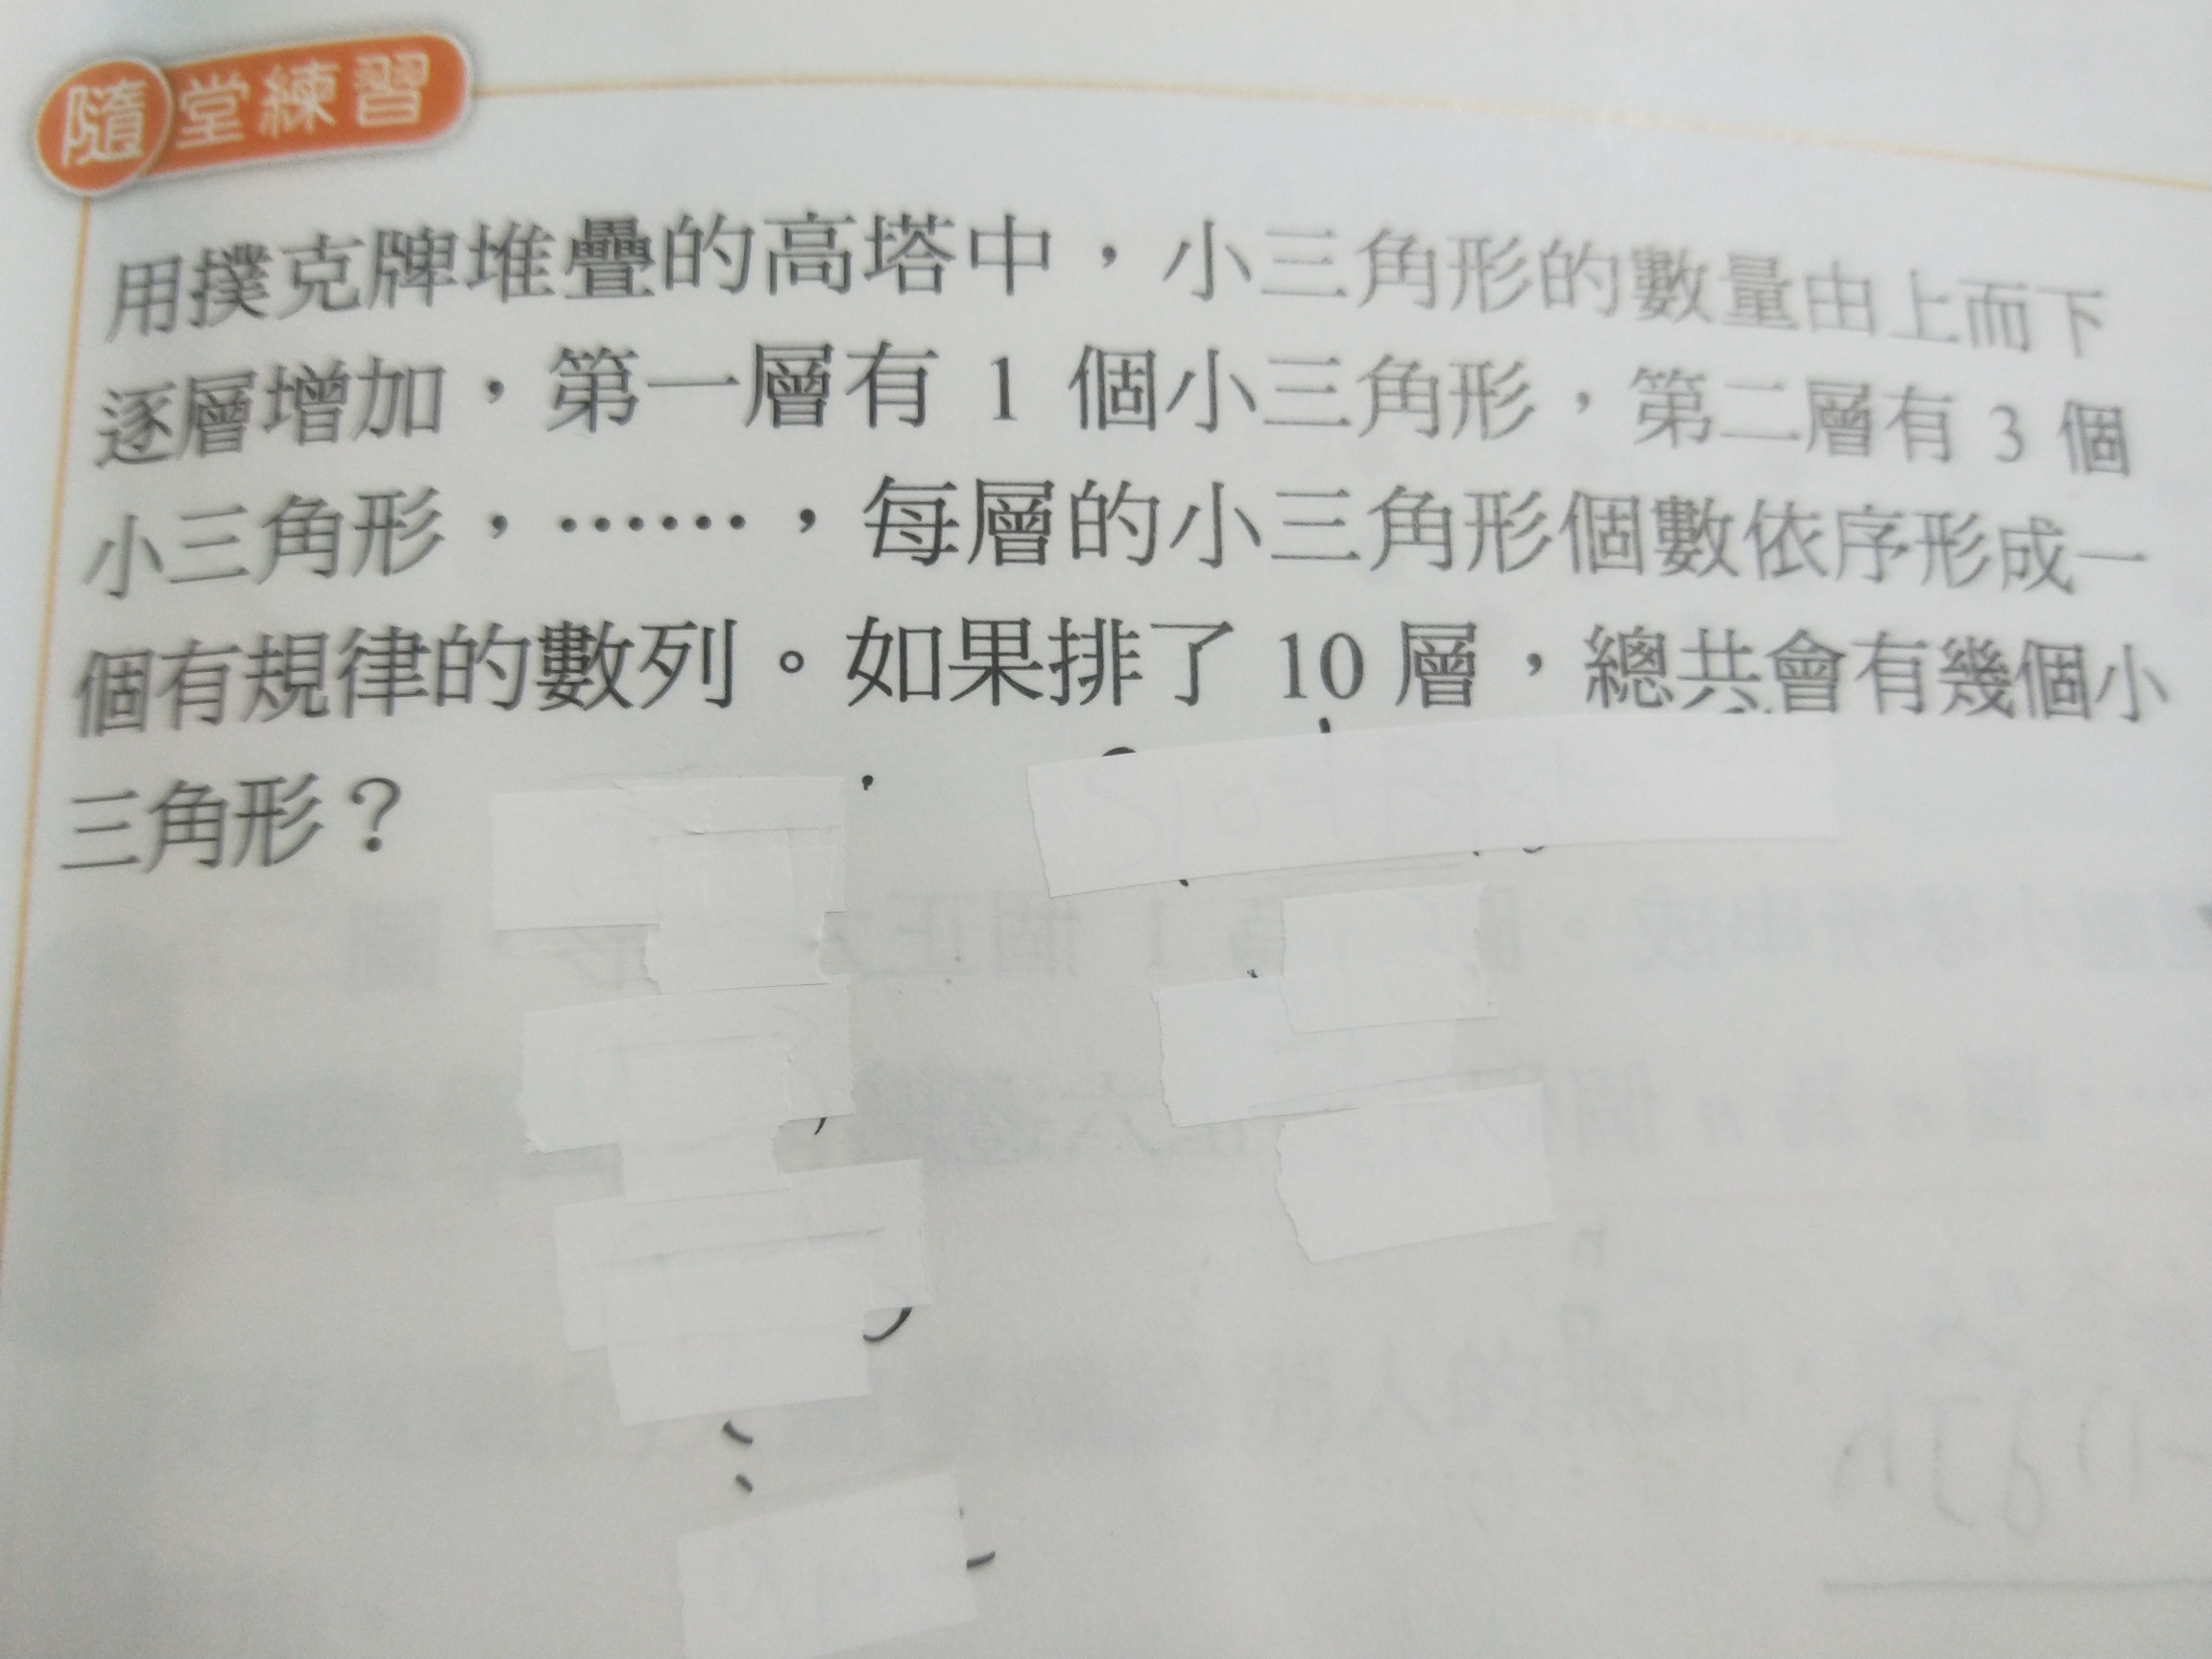 隨堂練習
用撲克牌堆疊的高塔中，小三角形的數量由上而下
逐層增加，第一層有 1 個小三角形，第二層有 3 個
小三角形，……，每層的小三角形個數依序形成一
個有規律的數列。如果排了 10 層，總共會有幾個小
三角形？